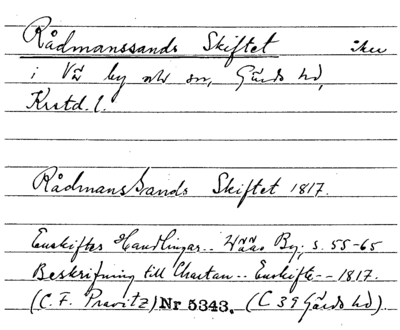 Rådmanssands Skiftet åker
i Vä by och sn, Gärds hd,
Krstd. l.
Rådmanssands Skiftet 1817.
Enskiftes Handlingar.. Wää By; s. 55-65
Beskrifning till Chartan.. Enskifte-- 1817.
(C. F. Pravitz) Nr 5343. (C 39 Gärds hd).